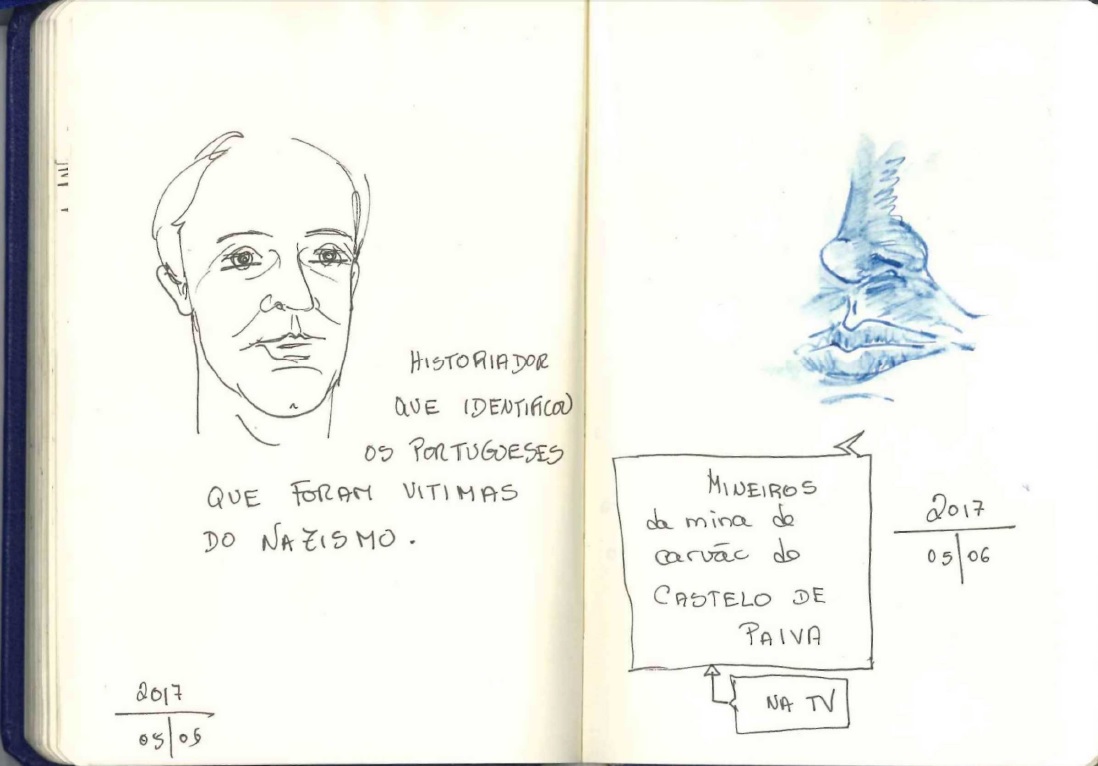 HISTORIADOR
QUE IDENTIFICOU
OS PORTUGUESES
QUE FORAM VITIMAS
DO NAZISMO.
2017
05|05
MINEIROS
da mina de
carvão do
CASTELO DE
PAIVA
NA TV
2017
05|06